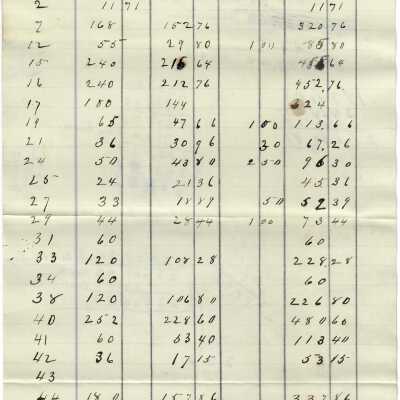 2 11 71 11 71
7 168 152 76 320 76
12 55 29 80 1 00 85 80
15 240 215 64 455 64
16 240 212 76 452 76
17 180 144 324
19 65 47 66 1 00 113 66
21 36 30 96 30 67 26
24 50 43 80 2 50 96 30
25 24 21 36 45 36
27 33 18 89 50 52 39
29 44 28 44 1 00 73 44
31 60 60
33 120 108 28 228 28
34 60 60
38 120 106 80 226 80
40 252 228 60 480 60
41 60 53 40 113 40
42 36 17 15 53 15
43
44 180 157 86 337 86